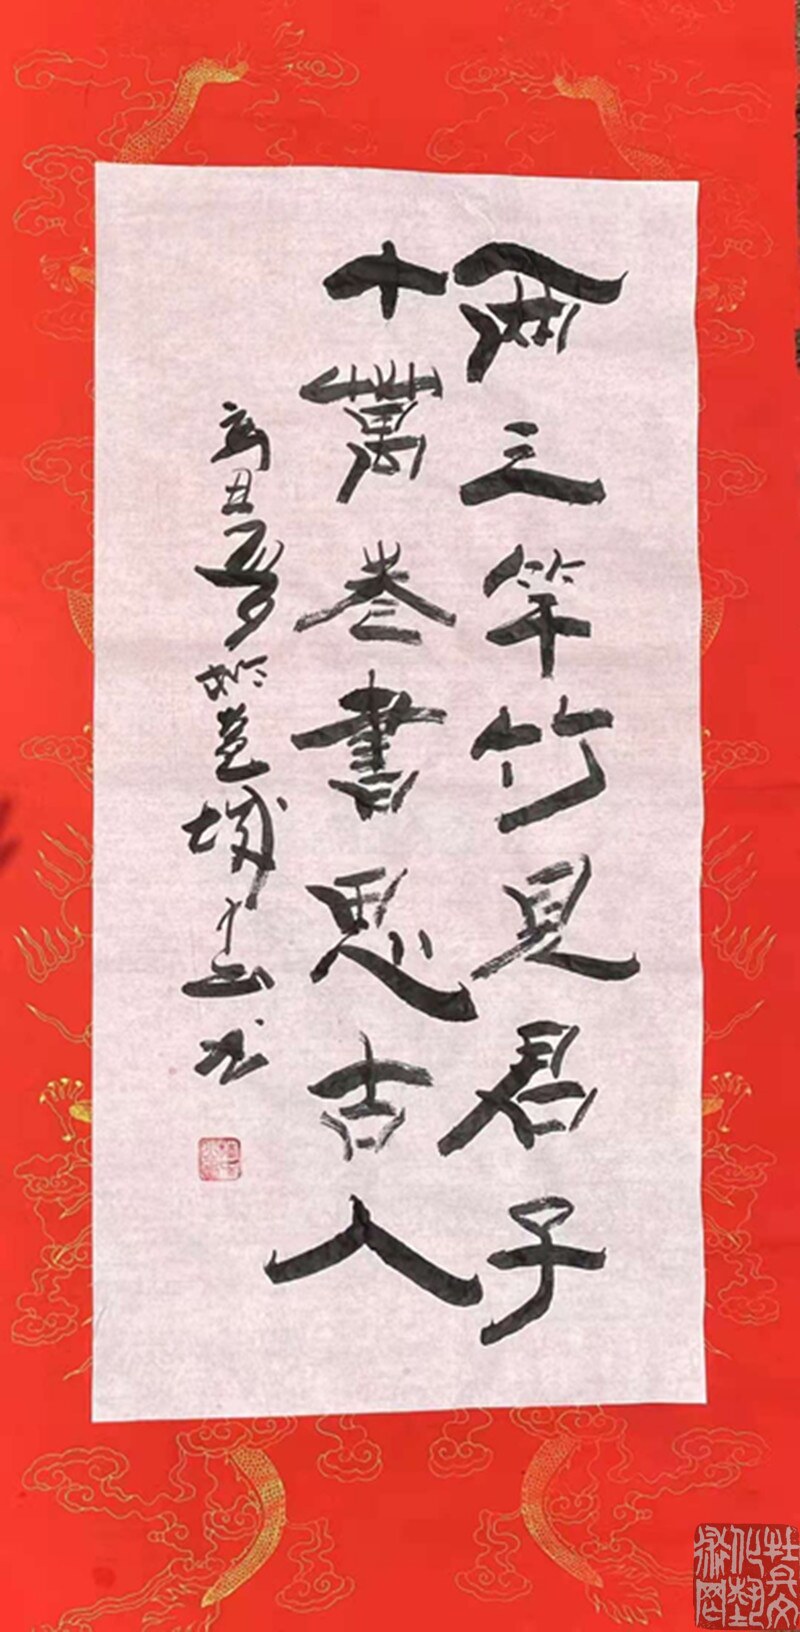 兩三竿竹見君子
十萬卷書思古人
辛丑夏於